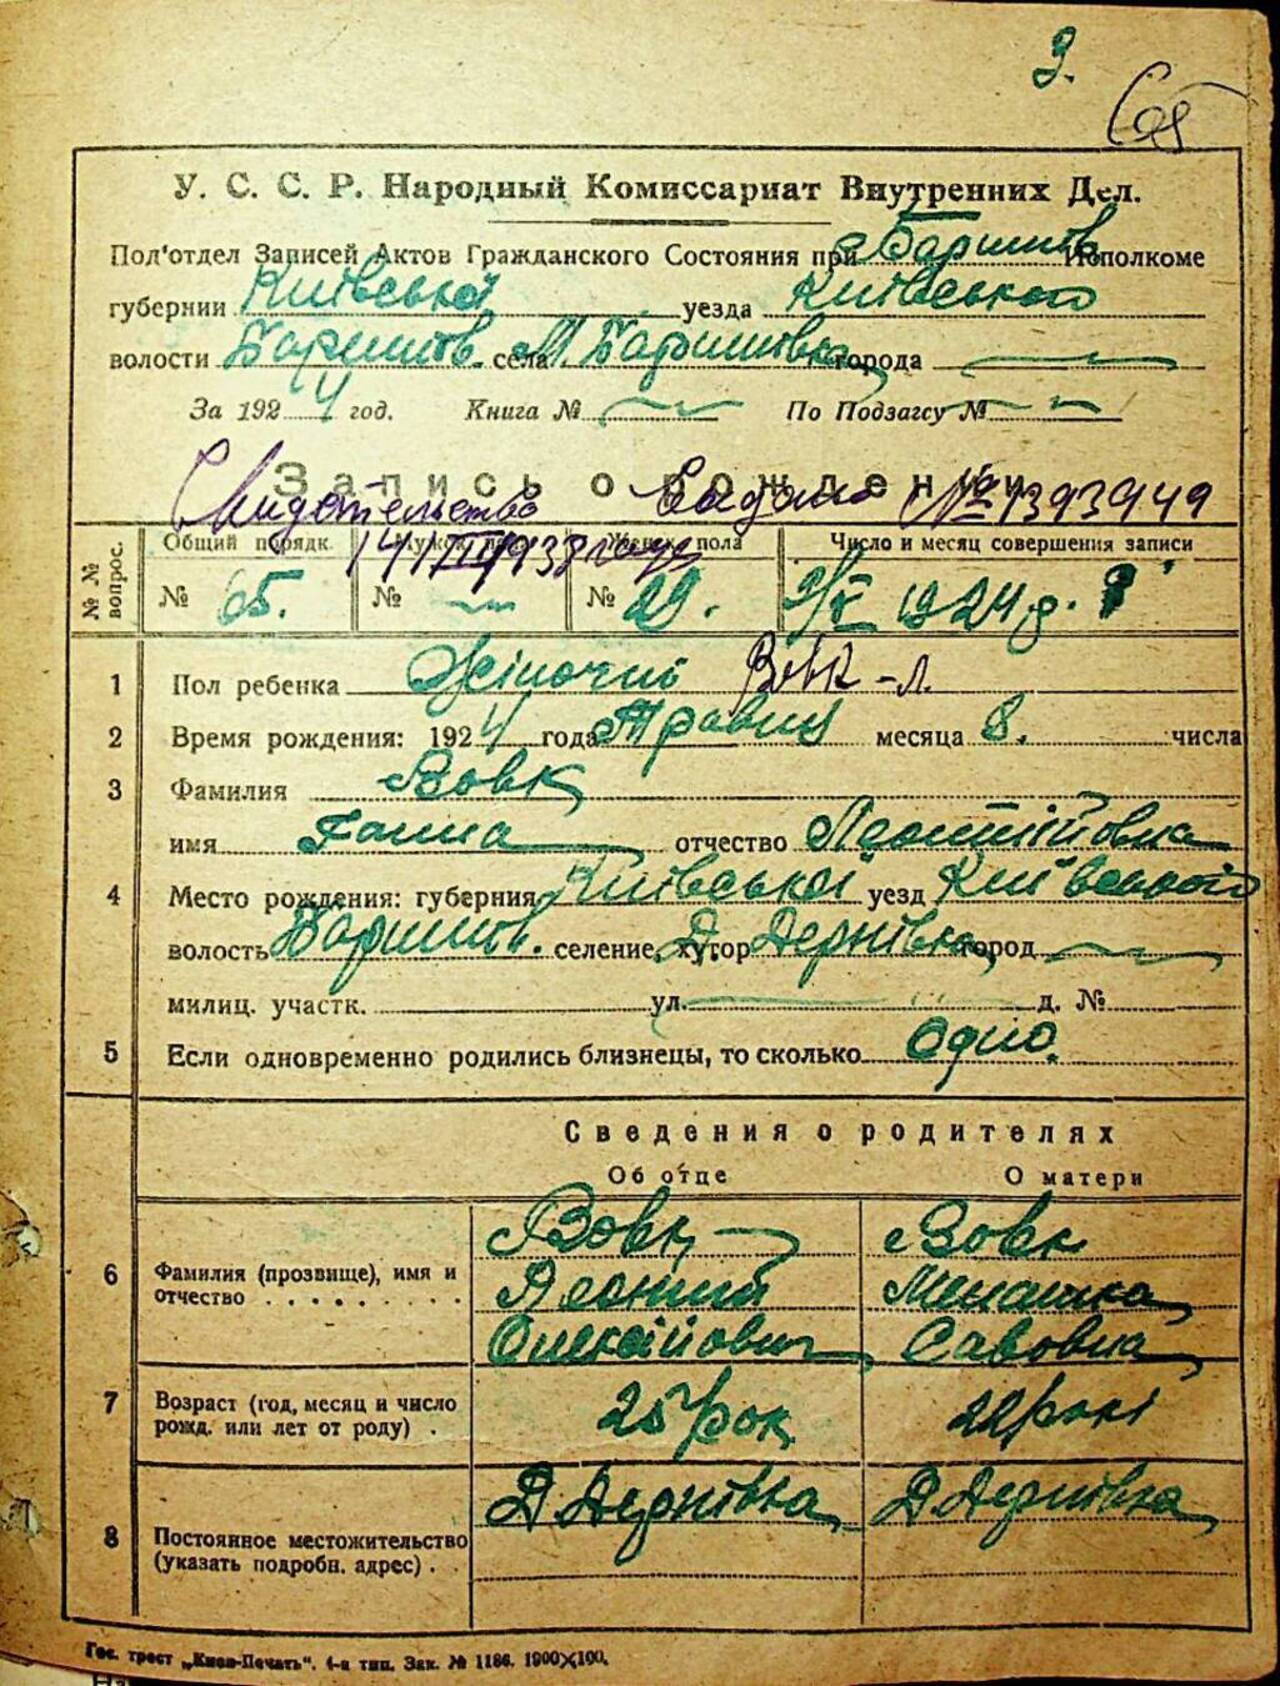 9.
65
У. С. С. Р. Народный Комиссариат Внутренних Дел.
Под'отдел Записей Актов Гражданского Состояния при Баришів Исполкоме
губернии Київської уезда Київського
волости Баришів. села М. Баришівка города
За 1924 год. Книга № По Подзагсу №
Запись о рождении
Свидетельство выдано № 1393949
14/III 1938 года
№№ вопрос. Общий порядк. Мужск. пола Женск. пола Число и месяц совершения записи
№ 65. № № 29. 9/V 1924 р.
1 Пол ребенка Жіночий Вовк -л.
2 Время рождения: 1924 года Травня месяца 8. числа
3 Фамилия Вовк
имя Ганна отчество Леонтійовна
4 Место рождения: губерния Київської уезд Київського
волость Баришів. селение, хутор Д. Дернівка город
милиц. участк. ул. д. №
5 Если одновременно родились близнецы, то сколько Одно.
Сведения о родителях
Об отце О матери
6 Фамилия (прозвище), имя и отчество . . . . . . . . .
Вовк Вовк
Леонтій
Олексійович Савовна
7 Возраст (год, месяц и число рожд. или лет от роду) . 25 рок 22 рокі
8 Постоянное местожительство (указать подробн. адрес) . Д Дернівка Д Дернівка
Гос. трест „Киев-Печать". 4-я тип. Зак. № 1186. 1900×100.